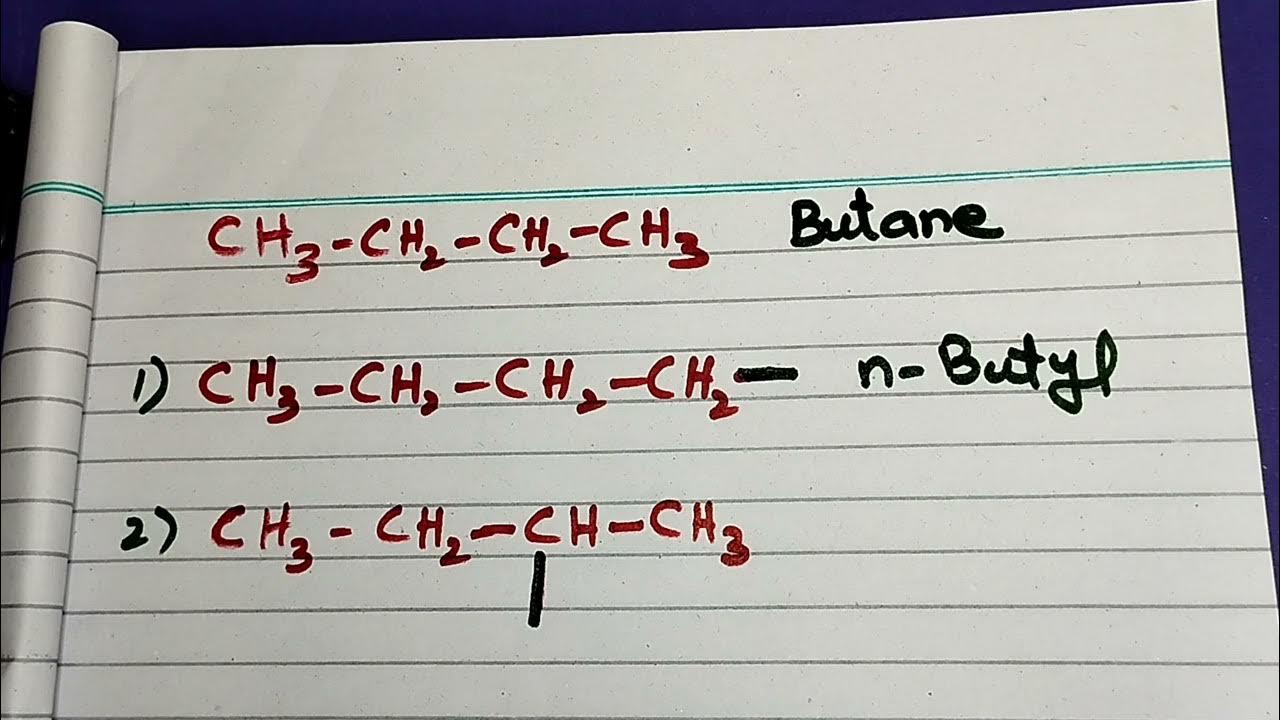 CH₃-CH₂-CH₂-CH₃ Butane
1) CH₃-CH₂-CH₂-CH₂- n-Butyl
2) CH₃-CH₂-CH-CH₃
|